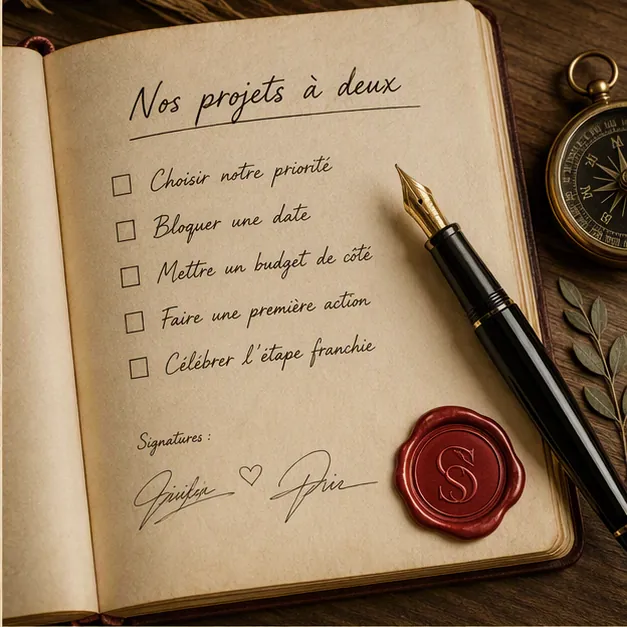 Nos projets à deux
Choisir notre priorité
Bloquer une date
Mettre un budget de côté
Faire une première action
Célébrer l'étape franchie
Signatures :
S